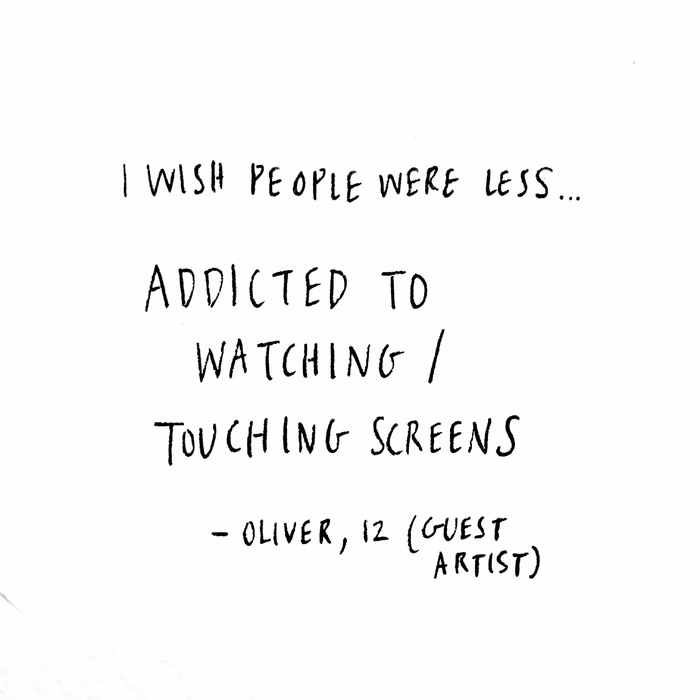 I WISH PEOPLE WERE LESS...
ADDICTED TO
WATCHING /
TOUCHING SCREENS
- OLIVER, 12 (GUEST
ARTIST)